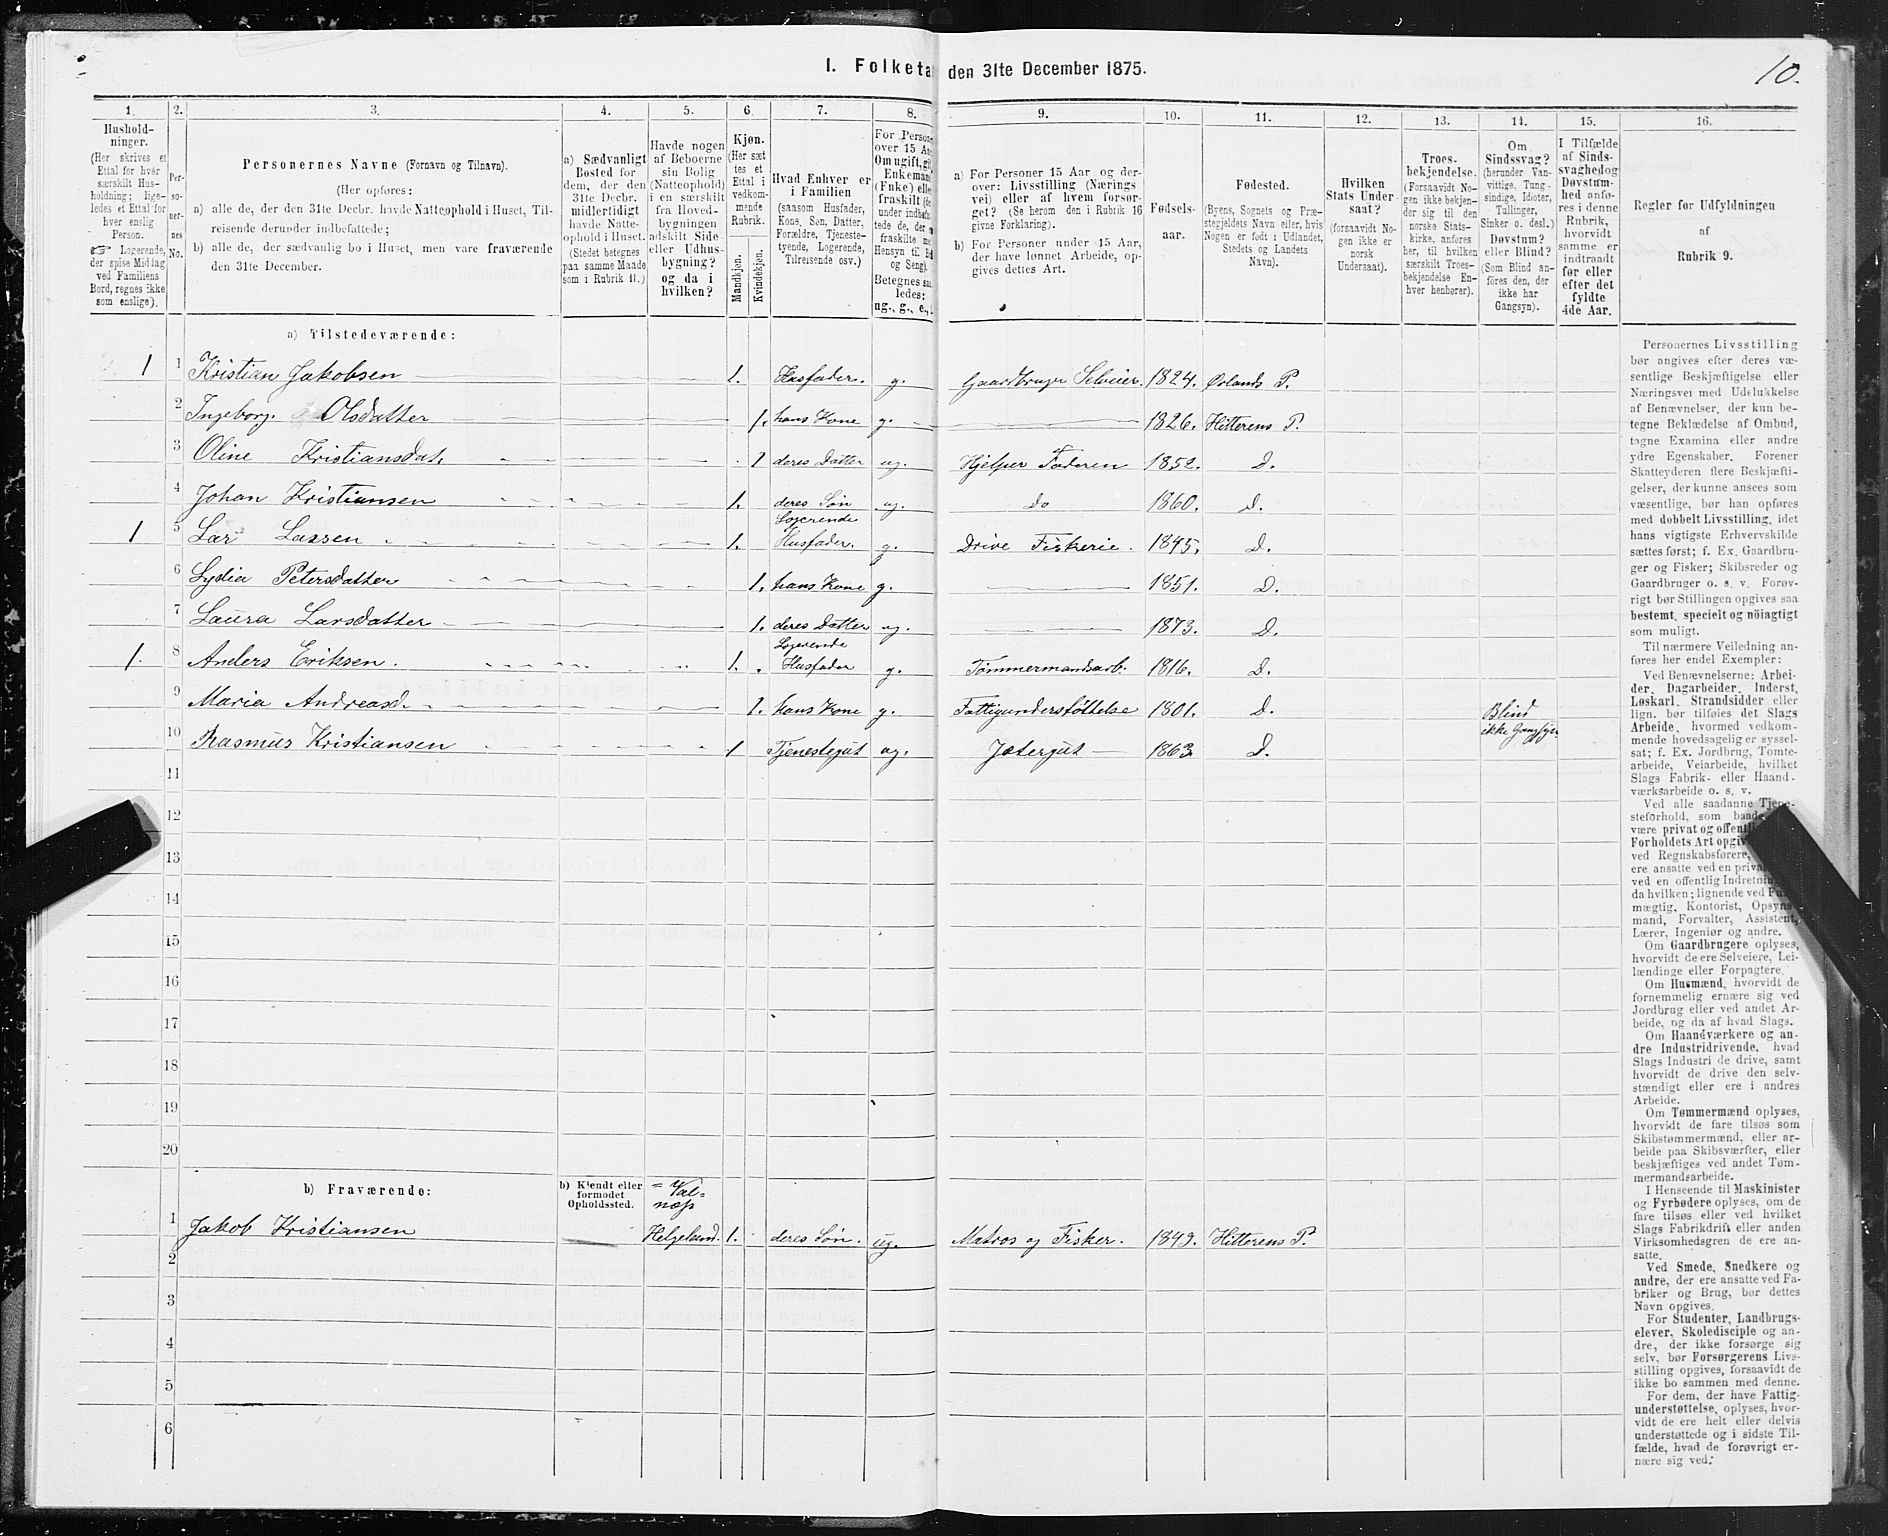 I. Folketa den 31te December 1875.
10.
1. 2. 3. 4. 5. 6 7. 8. 9. 10. 11. 12. 13. 14. 15. 16.
Hushold-
ninger.
(Her skrives et
Ettal for hver
særskilt Hus-
holdning; lige-
ledes et Ettal for
hver enslig
Person.
☞ Logerende,
der spise Middag
ved Familiens
Bord, regnes ikke
som enslige).
Per-
so-
ner-
nes
No.
Personernes Navne (Fornavn og Tilnavn).
(Her opføres:
a) alle de, der den 31te Decbr. havde Natteophold i Huset, Til-
reisende derunder indbefattede;
b) alle de, der sædvanlig bo i Huset, men vare fraværende
den 31te December.
a) Sædvanligt
Bosted for
dem, der den
31te Decbr.
midlertidigt
havde Natte-
ophold i Huset.
(Stedet betegnes
paa samme Maade
som i Rubrik 11.)
Havde nogen
af Beboerne
sin Bolig
(Natteophold)
i en særskilt
fra Hoved-
bygningen
adskilt Side-
eller Udhus-
bygning?
og da i
hvilken?
Kjøn.
(Her sæt-
tes et
Ettal i
vedkom-
mende
Rubrik.
Mandkjøn.
Kvindekjøn.
Hvad Enhver er
i Familien
(saasom Husfader,
Kone, Søn, Datter,
Forældre, Tjeneste-
tyende, Logerende,
Tilreisende osv.)
For Person
over 15 Aa
Om ugift, gi
Enkeman
(Fnke) elle
fraskilt (de
under indbefa
tede de, der e
fraskilte me
Hensyn til B
og Seng).
Betegnes saa
ledes:
ug., g., e.,
a) For Personer 15 Aar og der-
over: Livsstilling (Nærings
vei) eller af hvem forsør-
get? (Se herom den i Rubrik 16
givne Forklaring).
b) For Personer under 15 Aar,
der have lønnet Arbeide, op-
gives dettes Art.
Fødsels-
aar.
Fødested.
(Byens, Sognets og Præ-
stegjeldets Navn eller, hvis
Nogen er født i Udlandet,
Stedets og Landets
Navn).
Hvilken
Stats Under
saat?
(forsaavidt No-
gen ikke er
norsk
Undersaat).
Troes-
bekjendelse.
(Forsaavidt No-
gen ikke bekjen-
der sig til den
norske Stats-
kirke, anføres
her, til hvilken
særskilt Troes-
bekjendelse En-
hver henhører).
Om
Sindssvag?
(herunder Van-
vittige, Tung-
sindige, Idioter,
Tullinger,
Sinker o. desl.)
Døvstum?
eller Blind?
(Som Blind an-
føres den, der
ikke har
Gangsyn).
I Tilfælde
af Sinds-
svaghed og
Døvstum-
hed anfø-
res i denne
Rubrik,
hvorvidt
samme er
indtraadt
før eller
efter det
fyldte
4de Aar.
Regler for Udfyldningen
af
Rubrik 9.
a) Tilstedeværende:
1 1 Kristian Jakobsen 1. Husfader. g. Gaardbruger Selveier. 1824. Ørlands P.
2 Ingeborg Olsdatter 1. hans Kone g. 1826. Hitterens P.
3 Oline Kristiansdat. 1 deres Datter ug. Hjelper Faderen 1852. D.
4 Johan Kristiansen 1. deres Søn ug. Do 1860. D.
1 5 Lars Larsen 1. Logerende Husfader. g. Drive Fiskerie. 1845. D.
6 Lydia Petersdatter 1. hans Kone g. 1851. D.
7 Laura Larsdatter 1. deres Datter ug. 1873. D.
1. 8 Anders Eriksen. 1. Logerende Husfader g. Tømmermandsarb. 1816. D.
9 Maria Andreasd. 1. hans Kone g. Fattigunderstøttelse 1801. D. Blind ikke Gangsyn
10 Rasmus Kristiansen 1 Tjenestegut ug. Jætergut 1863 D.
11
12
13
14
15
16
17
18
19
20
b) Fraværende:
b) Kjendt eller
formodet
Opholdssted.
= Væl=
næs
1 Jakob Kristiansen Helgeland. 1. deres Søn. ug. Matros og Fisker. 1849. Hitterens P.
2
3
4
5
6
Personernes Livsstilling
bør angives efter deres væ-
sentlige Beskjæftigelse eller
Næringsvei med Udelukkelse
af Benævnelser, der kun be-
tegne Beklædelse af Ombud,
tagne Examina eller andre
ydre Egenskaber. Forener
Skatteyderen flere Beskjæfti-
gelser, der kunne ansees som
væsentlige, bør han opføres
med dobbelt Livsstilling, idet
hans vigtigste Erhvervskilde
sættes først; f. Ex. Gaardbru-
ger og Fisker; Skibsreder og
Gaardbruger o. s. v. Forøv-
rigt bør Stillingen opgives saa
bestemt, specielt og nöiagtigt
som muligt.
Til nærmere Veiledning an-
føres her endel Exempler:
Ved Benævnelserne: Arbei-
der, Dagarbeider, Inderst,
Løskarl, Strandsidder eller
lign. bør tilføies det Slags
Arbeide, hvormed vedkom-
mende hovedsagelig er syssel-
sat; f. Ex. Jordbrug, Tomte-
arbeide, Veiarbeide, hvilket
Slags Fabrik- eller Haand-
værksarbeide o. s. v.
Ved alle saadanne Tjene-
steforhold, som baade
være privat og offentli
Forholdets Art opgiv
ved Regnskabsførere,
ere ansatte ved en priva
ved en offentlig Indretnin
da hvilken; lignende ved Fu
mægtig, Kontorist, Opsyns-
mand, Forvalter, Assistent,
Lærer, Ingeniør og andre.
Om Gaardbrugere oplyses,
hvorvidt de ere Selveiere, Lei-
lændinge eller Forpagtere.
Om Husmænd, hvorvidt de
fornemmelig ernære sig ved
Jordbrug eller ved andet Ar-
beide, og da af hvad Slags.
Om Haandværkere og an-
dre Industridrivende, hvad
Slags Industri de drive, samt
hvorvidt de drive den selv-
stændigt eller ere i andres
Arbeide.
Om Tømmermænd oplyses,
hvorvidt de fare tilsøs som
Skibstømmermænd, eller ar-
beide paa Skibsværfter, eller
beskjæftiges ved andet Tøm-
mermandsarbeide.
I Henseende til Maskinister
og Fyrbødere oplyses, om de
fare tilsøs eller ved hvilket
Slags Fabrikdrift eller anden
Virksomhedsgren de ere an-
satte.
Ved Smede, Snedkere og
andre, der ere ansatte ved Fa-
briker og Brug, bør dettes
Navn opgives.
For Studenter, Landbrugs-
elever, Skoledisciple og an-
dre, der ikke forsørge sig
selv, bør Forsørgerens Livs-
stilling opgives, forsaavidt de
ikke bo sammen med denne.
For dem, der have Fattig-
understøttelse, oplyses, hvor-
vidt de ere helt eller delvis
understøttede og i sidste Til-
fælde, hvad de forøvrigt er-
nære sig ved.